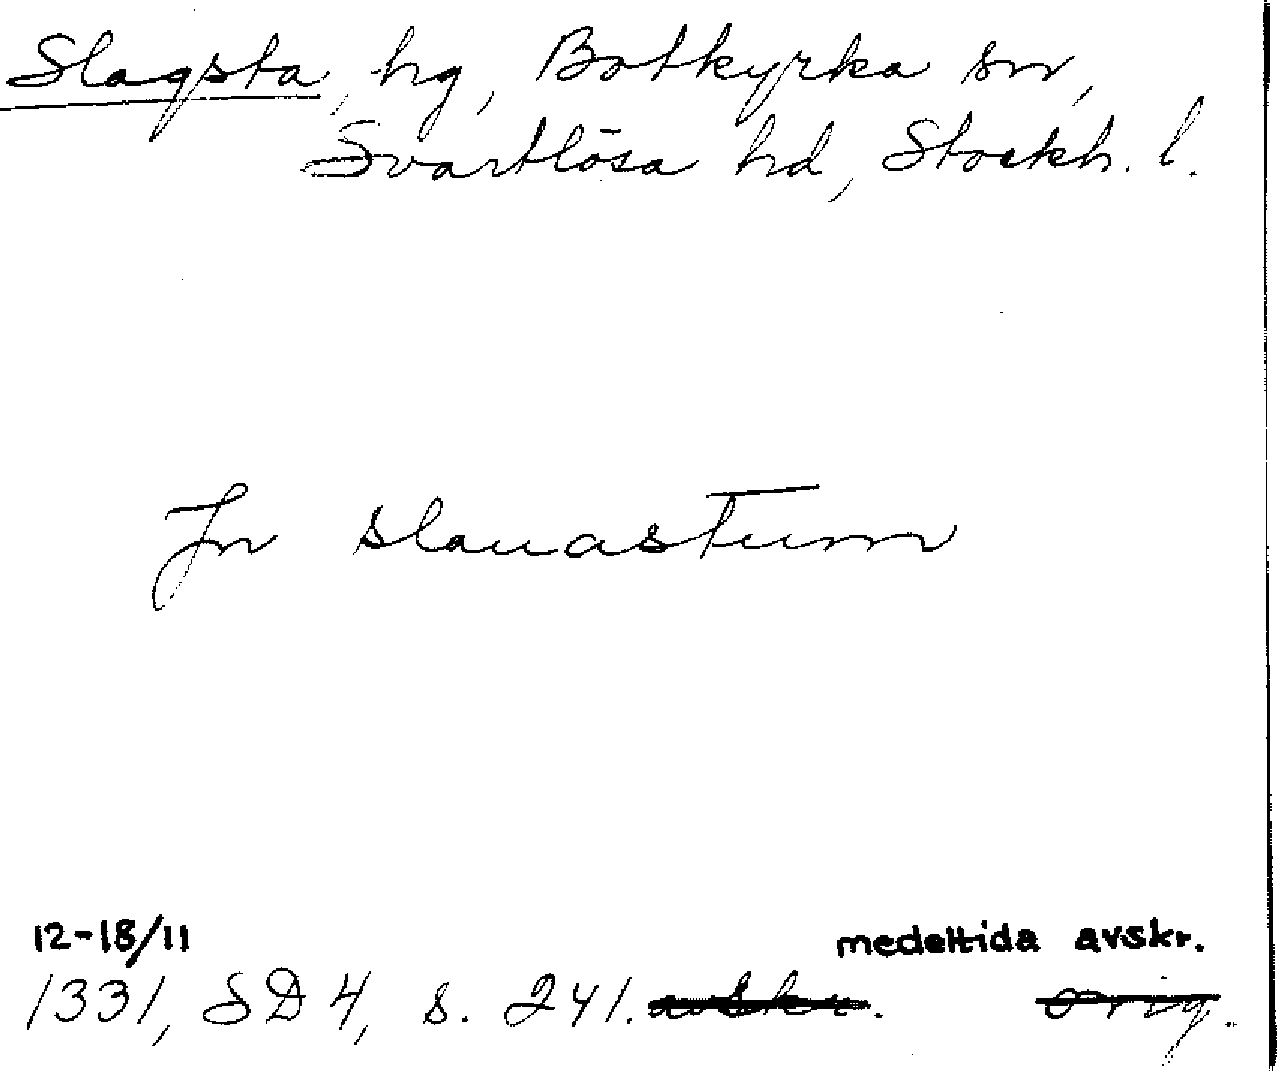 Slagsta, hg, Botkyrka sn,
Svartlösa hd, Stockh. l.
Jn slauastum
12-18/11 medeltida avskr.
1331, SD 4, s. 241. avskr. orig.